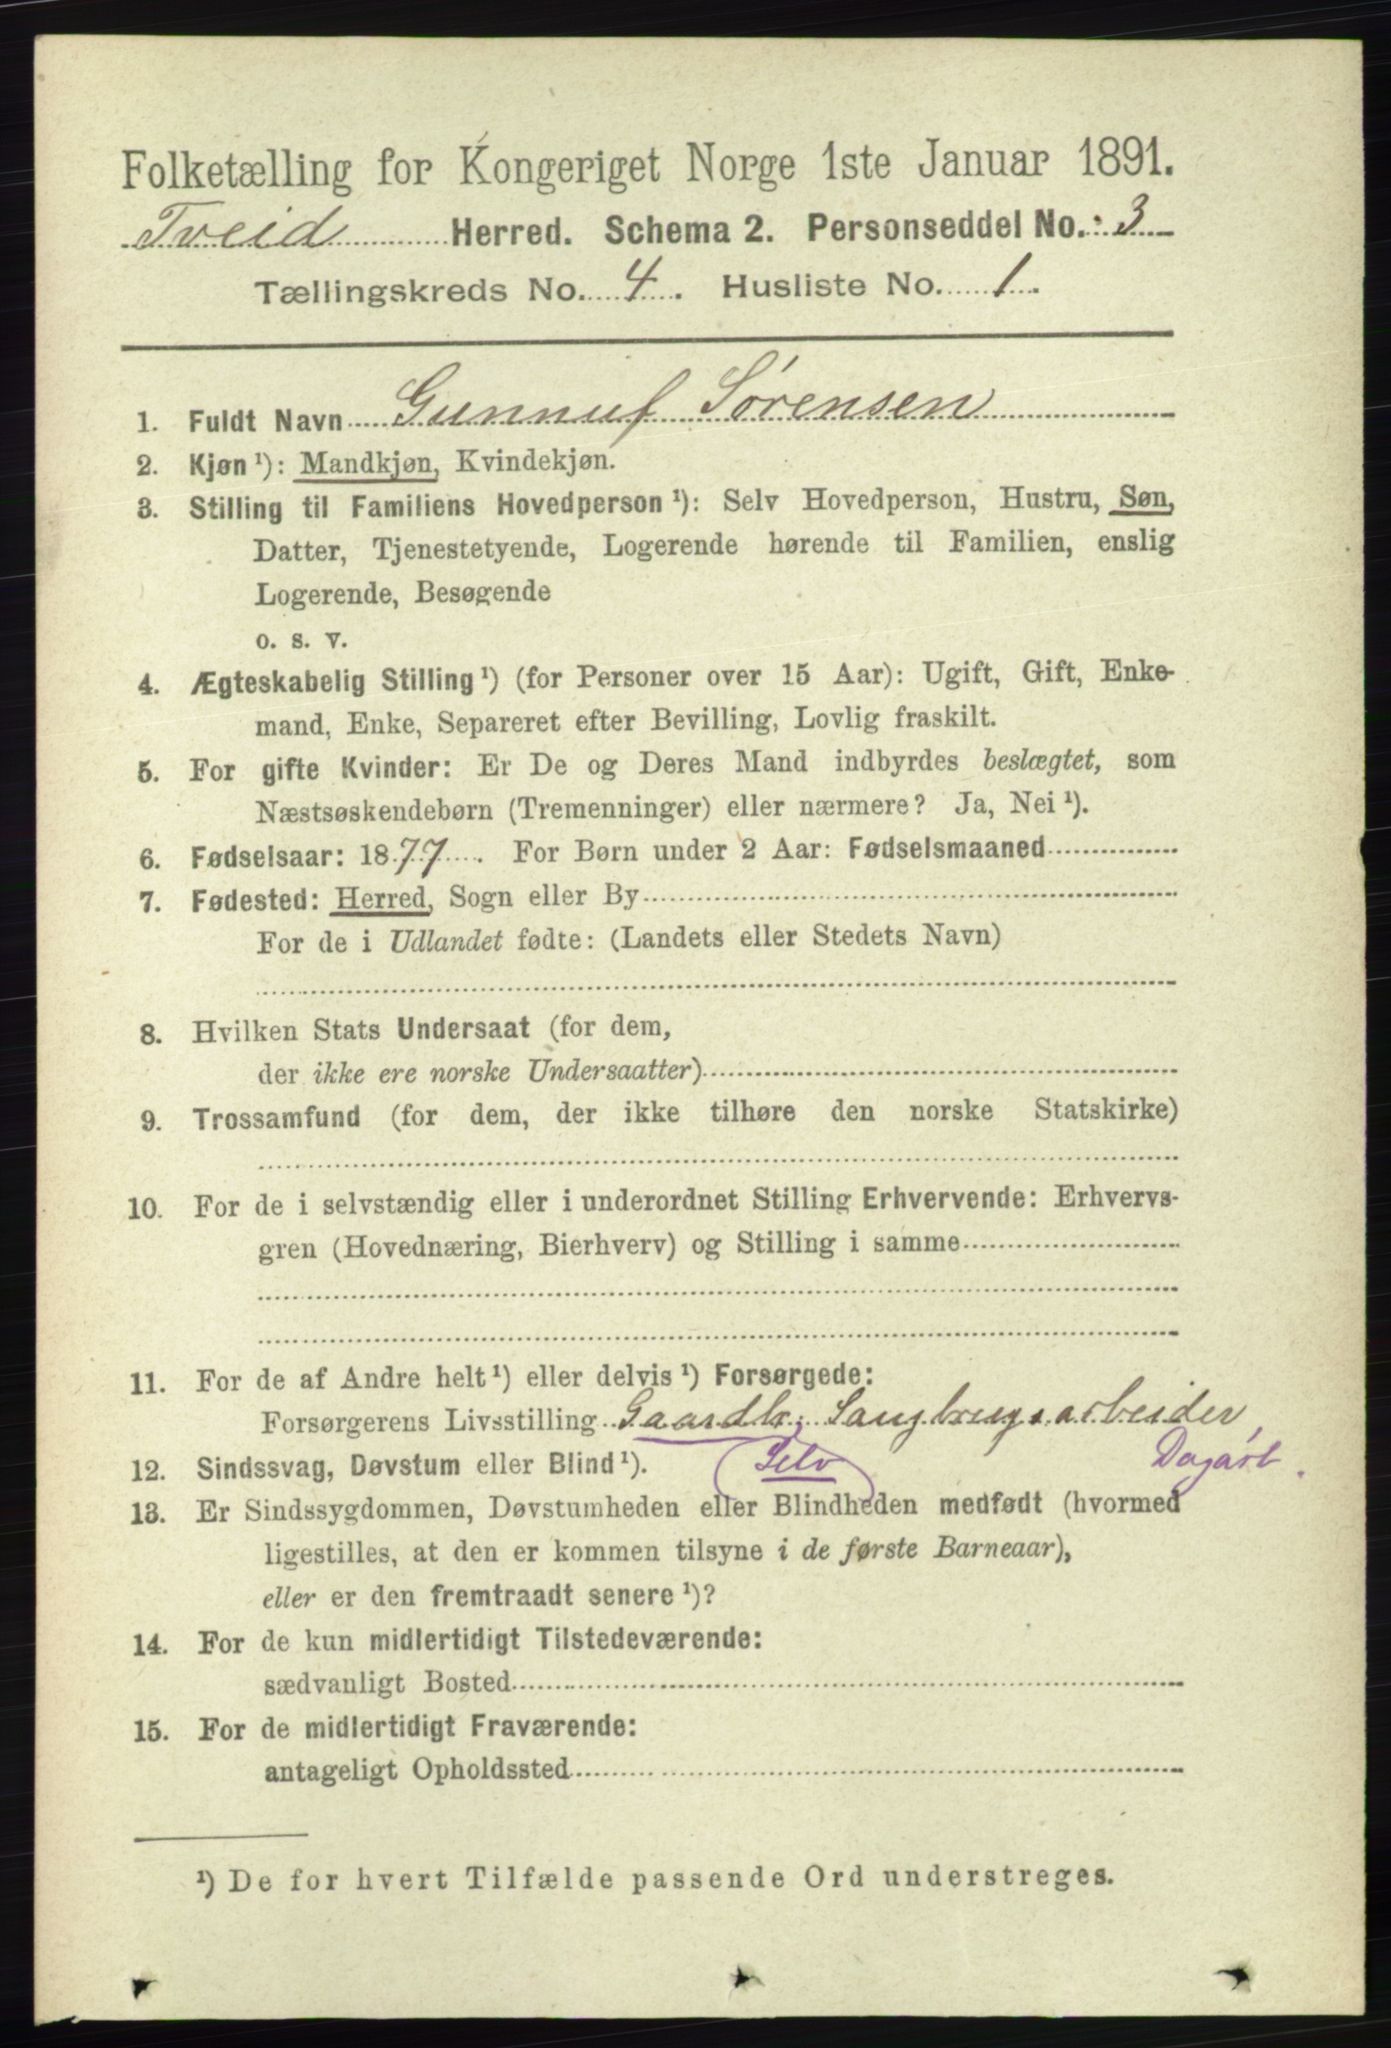 Folketælling for Kongeriget Norge 1ste Januar 1891.
Tveid Herred. Schema 2. Personseddel No. 3
Tællingskreds No. 4. Husliste No. 1.
1. Fuldt Navn Gunnuf Sørensen
2. Kjøn ¹): Mandkjøn, Kvindekjøn.
3. Stilling til Familiens Hovedperson ¹): Selv Hovedperson, Hustru, Søn,
Datter, Tjenestetyende, Logerende hørende til Familien, enslig
Logerende, Besøgende
o. s. v.
4. Ægteskabelig Stilling ¹) (for Personer over 15 Aar): Ugift, Gift, Enke-
mand, Enke, Separeret efter Bevilling, Lovlig fraskilt.
5. For gifte Kvinder: Er De og Deres Mand indbyrdes beslægtet, som
Næstsøskendebørn (Tremenninger) eller nærmere? Ja, Nei ¹).
6. Fødselsaar: 1877. For Børn under 2 Aar: Fødselsmaaned
7. Fødested: Herred, Sogn eller By
For de i Udlandet fødte: (Landets eller Stedets Navn)
8. Hvilken Stats Undersaat (for dem,
der ikke ere norske Undersaatter)
9. Trossamfund (for dem, der ikke tilhøre den norske Statskirke)
10. For de i selvstændig eller i underordnet Stilling Erhvervende: Erhvervs-
gren (Hovednæring, Bierhverv) og Stilling i samme
11. For de af Andre helt ¹) eller delvis ¹) Forsørgede:
Forsørgerens Livsstilling Gaardbr, Saugbrugsarbeider
12. Sindssvag, Døvstum eller Blind ¹). Selv Dagarb.
13. Er Sindssygdommen, Døvstumheden eller Blindheden medfødt (hvormed
ligestilles, at den er kommen tilsyne i de første Barneaar),
eller er den fremtraadt senere ¹)?
14. For de kun midlertidigt Tilstedeværende:
sædvanligt Bosted
15. For de midlertidigt Fraværende:
antageligt Opholdssted
¹) De for hvert Tilfælde passende Ord understreges.